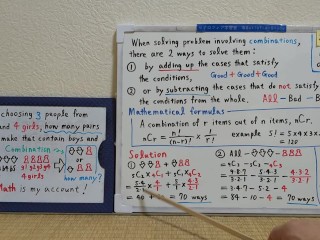 choosing 3 people from
and 4 girls, how many pairs
make that contain boys and
Combination
how many?
Math is my account!
When solving problem involving combinations,
there are 2 ways to solve them:
① by adding up the cases that satisfy
the conditions,
Good + Good + Good
② or by subtracting the cases that do not satisfy
the conditions from the whole.
All - Bad - B
Mathematical formulas
A combination of r items out of n items, nCr.
nCr = n!/(n-r)! × 1/r!
example 5! = 5×4×3×
120
Solution
①
5C2 × 4C1 + 5C1 × 4C2
= 5·4/2·1 × 4/1 + 5/1 × 4·3/2·1
= 40 +
= 70 ways
② All -
= 9C3 - 5C3 - 4C3
= 3·4·7 - 5·2 - 4
= 84 - 10 - 4 = 70 ways